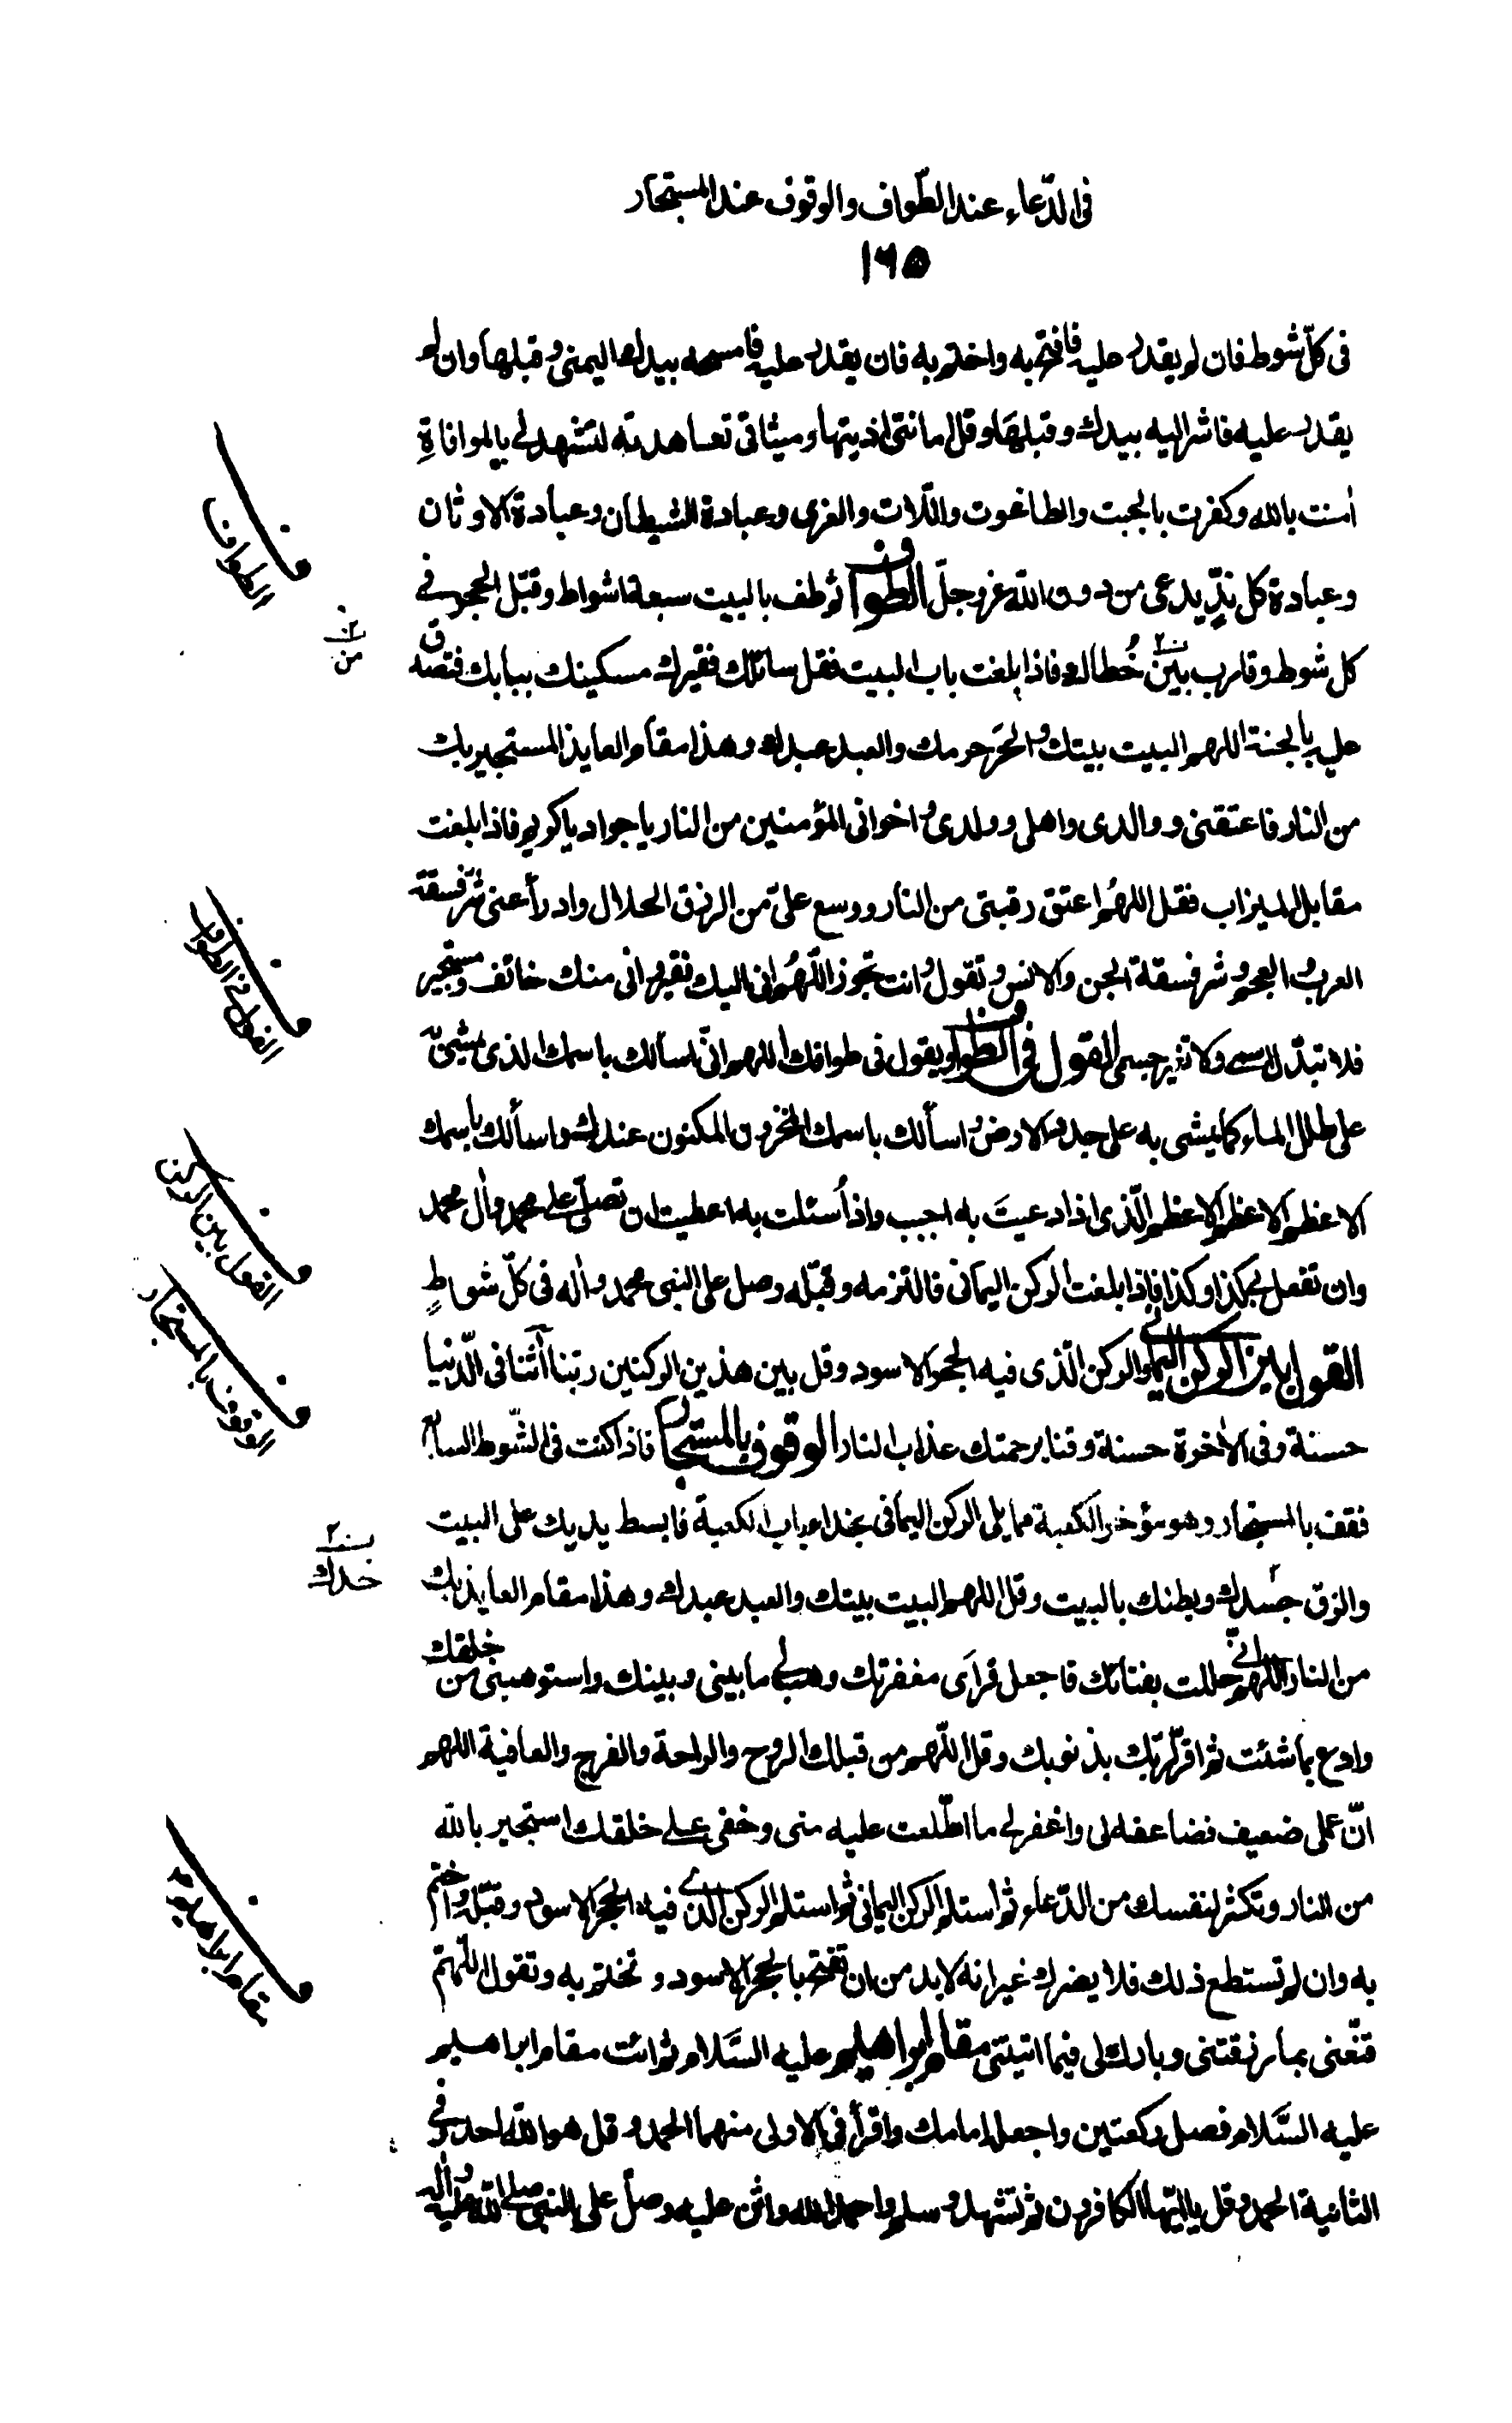 فى الدّعاء عند الطّواف والوقوف عند المستجار
١٦٥
فى كلّ شوط فان لم يقدر عليه فافتح به واختم به فان يقدر عليه فامسحه بيدك اليمنى وقبلها وان لم
يقدر عليه فاشر اليه بيدك وقبلها وقل امانتى اديتها وميثاقى تعاهدته لتشهد لى بالموافاةِ
اٰمنت بالله وكفرت بالجبت والطاغوت واللّات والعزى وعبادة الشيطان وعبادة الاوثان
وعبادة كل ندٍّ يدعى من دون الله عزوجلّ الطواف ثم طف بالبيت سبعة اشواط وقبّل الحجر فى
كل شوط وقارب بين خُطاك فاذا بلغت باب البيت فقل سائلك فقيرك مسكينك ببابك فتصدق
عليه بالجنة اللهم البيت بيتك والحرم حرمك والعبد عبدك وهذا مقام العايذ المستجير بك
من النار فاعتقنى ووالدى واهلى وولدى واخوانى المؤمنين من النار يا جواد يا كريم فاذا بلغت
مقابل الميزاب فقل اللهُم اعتق رقبتى من النار ووسع علىّ من الرزق الحلال وادرأ عنى شرّ فسقة
العرب والعجم وشر فسقة الجن والانس وتقول وانت تجوز اللّهُم انى اليك فقير وانى منك خائف ومستجير
فلا تبدّل اسمى ولا تغير جسمى القول فى الطواف ويقول فى طوافك اللهم انّى اسالك باسمك الذى يمشى به
على طلل الماء كما يمشى به على جدد الارض واسألك باسمك المخزون المكنون عندك واسألك باسمك
الاعظم الاعظم الاعظم الّذى اذا دعيتَ به اجبب واذا سُئلت به اعطيت ان تصلّى على محمد واٰل محمد
وان تفعل بى كذا وكذا فاذا بلغت الركن اليمانى فالتزمه وقبّله وصل على النبى محمد واٰله فى كلّ شواطٍ
القول بين الركن اليمانى والركن الّذى فيه الحجر الاسود وقل بين هذين الركنين ربّنا اٰتنا فى الدّنيا
حسنة وفى الاٰخرة حسنة وقنا برحمتك عذاب النار الوقوف بالمستجار فاذا كنت فى الشّوط السابع
فقف بالمستجار وهو مؤخر الكعبة مما يلى الركن اليمانى بحذاء باب الكعبة فابسط يديك على البيت
والزق جسدك وبطنك بالبيت وقل اللهم البيت بيتك والعبد عبدك وهذا مقام العايذ بك
من النار اللهم انّى حللت بفنائك فاجعل قراى مغفرتك وهب لى ما بينى وبينك واستوهبنى من خلقك
وادع بما شئت ثم اقرّ لربّك بذنوبك وقل اللّهم من قبلك الروح والراحة والفرج والعافية اللهم
انّ عملى ضعيف فضاعفه لى واغفر لى ما اطّلعت عليه منى وخفى على خلقك استجير بالله
من النار وتكثر لنفسك من الدّعاء ثم استلم الركن اليمانى ثم استلم الركن الذى فيه الحجر الاسود وقبّله واختم
به وان لم تستطع ذلك فلا يضرك غير انه لابد من ان تفتح بالحجر الاسود وتختم به وتقول اللّهمّ
قنّعنى بما رزقتنى وبارك لى فيما اتيتنى مقام ابراهيم عليه السَّلام ثم ائت مقام ابراهيم
عليه السَّلام فصل ركعتين واجعله امامك واقرأ فى الاولى منهما الحمد وقل هو الله احد وفى
الثانية الحمد وقل يا ايّها الكافرون ثم تشهد وسلم واحمد الله واثن عليه وصلّ على النبى صلى الله عليه واٰله
الطواف
من
القول فى الطواف
القول بين الركن
الوقوف بالمستجار
خدك
مقام ابراهيم